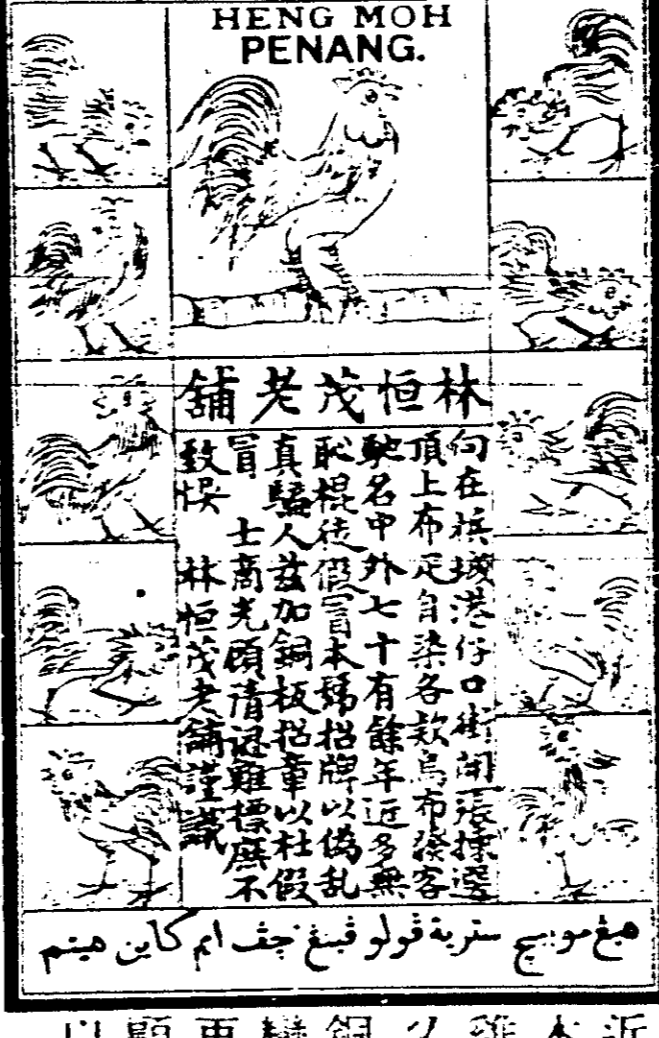 HENG MOH
PENANG.
林恒茂老舖
向在檳城港仔口街開張揀選
頂上布疋自染各款烏布發客
馳名中外七十有餘年近多無
恥棍徒假冒本號招牌以偽乱
真騙人茲加銅板招章以杜假
冒 士商光顧請認雞標庶不
致悞 林恒茂老舖謹識
هيڠ مو ستربة ڤولو ڤينڠ چڤ ايم كاين هيتم